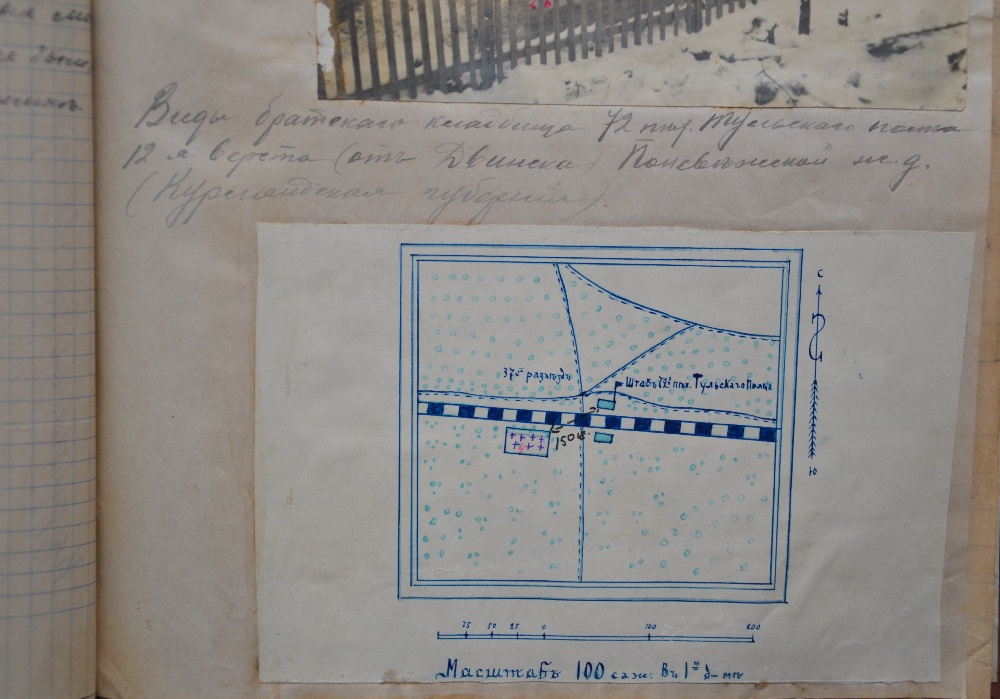 Виды братскаго кладбища 72 пѣх. Тульскаго полка
12я верста (отъ Двинска) Поневѣжской ж.д.
(Курляндская губернія).
С
37ой разъѣздъ
Штабъ 72го пѣх. Тульскаго Полка
150 ш.
Ю
75 50 25 0 100 200
Масштабъ 100 саж: въ 1мъ д-мѣ